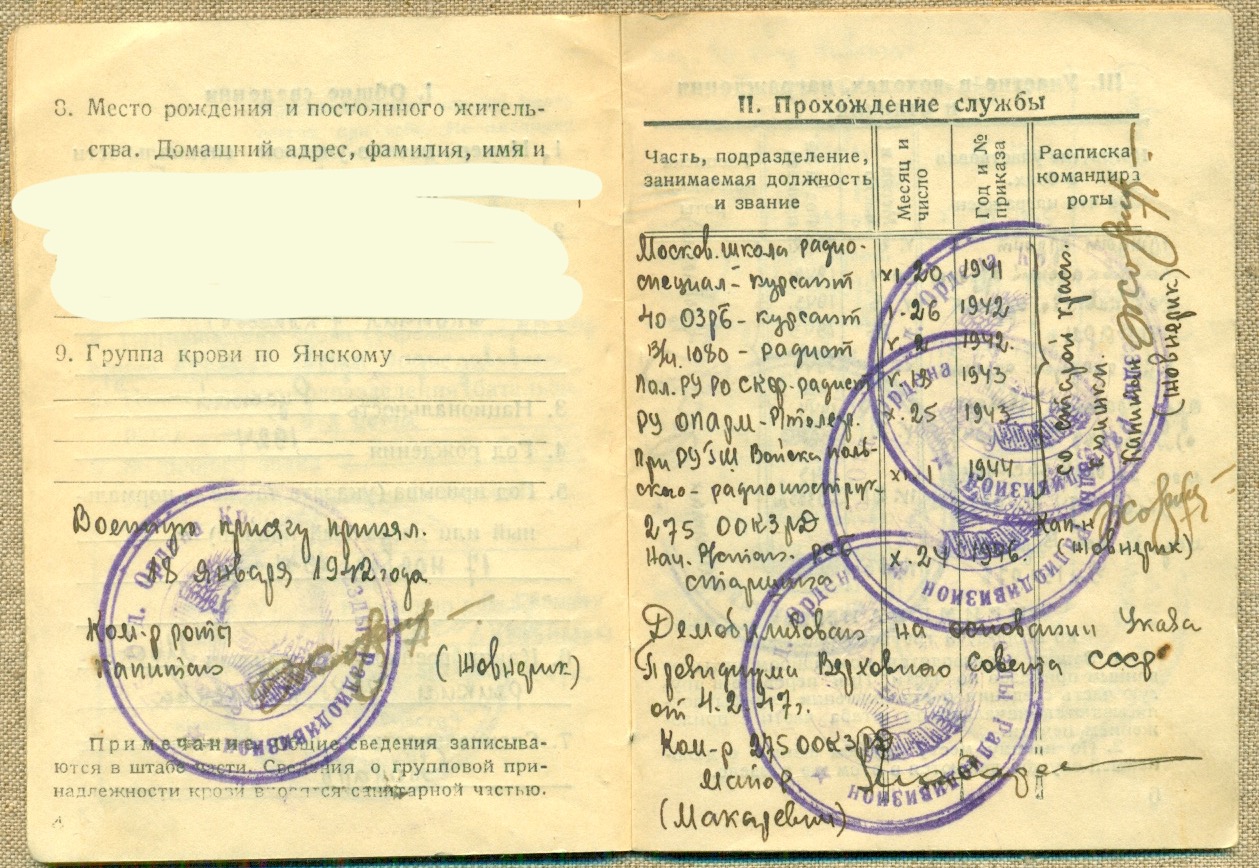 8. Место рождения и постоянного житель-
ства. Домашний адрес, фамилия, имя и
9. Группа крови по Янскому
Военную присягу принял.
18 января 1942 года.
Ком-р роты
капитан
(Шовнерик)
Примечание. Общие сведения записыва-
ются в штабе части. Сведения о групповой при-
надлежности крови вносятся санитарной частью.
II. Прохождение службы
Часть, подразделение,
занимаемая должность
и звание
Месяц и
число
Год и №
приказа
Расписка
командира
роты
Москов. школа радио-
специал- курсант XI. 20 1941
40 ОЗРБ - курсант 1. 26 1942
1080 - радист 1942.
РУ РО СКФ. радист V. 13 1943
РУ X. 25 1943
При РУ ГШ Войска Поль-
ского - радиоинструк. XI. 1 1944
со старой красн.
книжки.
Капитан
(Шовнерик)
275 ООКЗРД
Нач. РСБ X. 24 1946.
старшина
Кап-н
(Шовнерик)
Демобилизован на основании Указа
Президиума Верховного Совета СССР
от 4.2.47г.
Ком-р 275 ООКЗРД
Майор
(Макаревич)